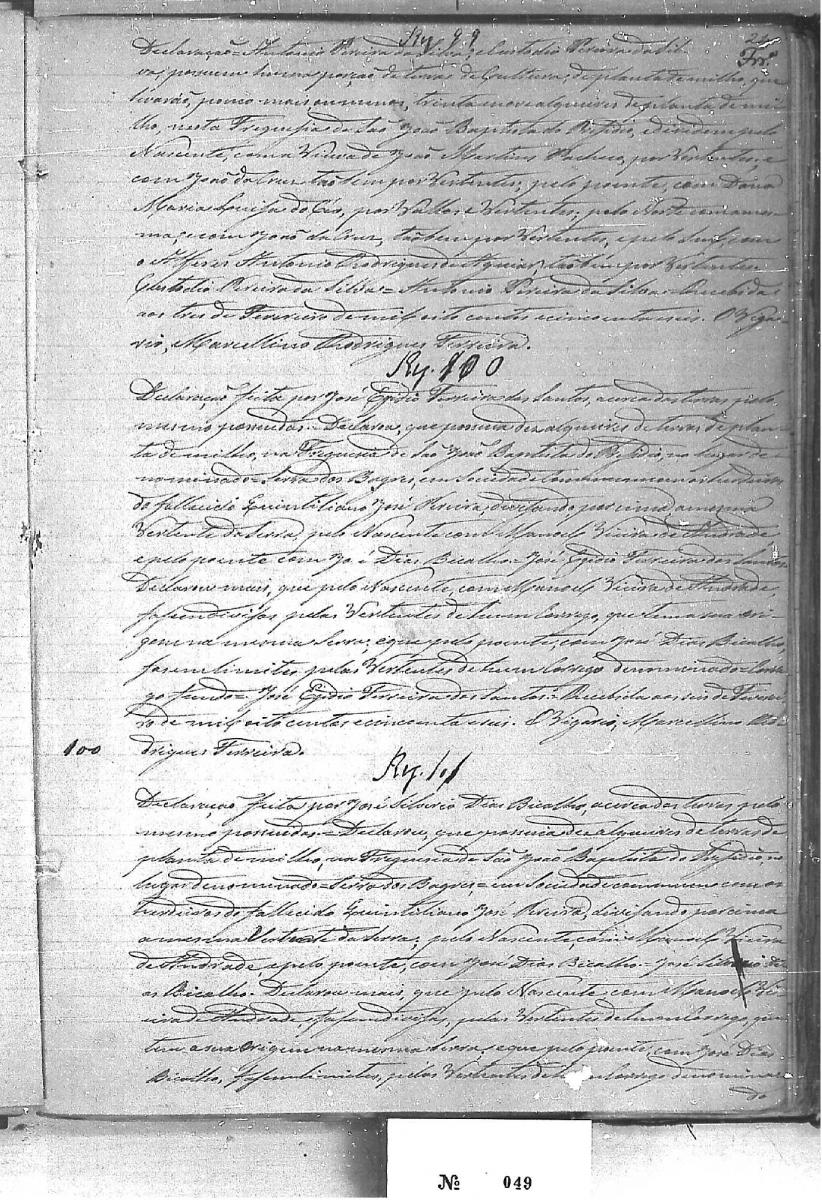 Rg. 99
Declaração = Antonio Pereira da Silva, e Custodio Pereira da Sil-
va, possuem huma porção de terras de Cultura, de planta de milho, que
levarão, pouco mais, ou menos, trinta e nove alqueires de planta de mi-
lho, nesta Freguesia de São João Baptista do Presidio, e dividem pelo
Nascente, com a Viuva de João Martins Pacheco, por Vertentes, e
com João da Cruz, tão bem por Vertentes; pelo poente, com Dona
Maria Luisa do Céo, por Vallos e Vertentes; pelo Norte com a mes-
ma, e com João da Cruz, tão bem por Vertentes, e pelo Sul, com
o Alferes Antonio Rodrigues de Aguiar, tão bem por Vertentes
Custodio Pereira da Silva = Antonio Pereira da Silva = Recebida
aos tres de Fevereiro de mil oito centos e cincoenta e seis. O Viga-
rio, Marcellino Rodrigues Ferreira.
Rg. 100
Declaração feita por José Egidio Ferreira dos Santos, acerca das terras pelo
mesmo possuidas = Declarou, que possuia dez alqueires de terras de plan-
ta de milho, na Freguesia de São João Baptista do Presidio, no lugar de-
nominado = Serra dos Bagres, em Sociedade commum com os herdeiros
do fallecido Quintiliano José Pereira, divisando por cima a mesma
Vertente da Serra, pelo Nascente com Manoel Vieira de Andrade
e pelo poente com José Dias Bicalho = José Egidio Ferreira dos Santos
Declarou mais, que pelo Nascente, com Manoel Vieira de Andrade,
fasem divisas pelas Vertentes de hum Corrego, que tem a sua ori-
gem na mesma Serra; e que pelo poente, com José Dias Bicalho,
fasem limites, pelas Vertentes de hum Corrego denominado = Corre-
go fundo = José Egidio Ferreira dos Santos = Recebida aos seis de Feverei-
ro de mil oito centos e cincoenta e seis. O Vigario, Marcellino Ro-
100 drigues Ferreira.
Rg. 101
Declaração feita por José Silverio Dias Bicalho, acerca das terras pelo
mesmo possuidas = Declarou, que possuia dez alqueires de terras de
planta de milho, na Freguesia de São João Baptista do Presidio, no
lugar denominado = Serra dos Bagres = em Sociedade commum com os
herdeiros do fallecido Quintiliano José Pereira, divisando por cima
a mesma Vertente da Serra, pelo Nascente com Manoel Vieira
de Andrade, e pelo poente, com José Dias Bicalho = José Silverio Di-
as Bicalho. Declarou mais, que pelo Nascente com Manoel Vi-
eira de Andrade, fasem divisas, pelas Vertentes de hum Corrego, que
tem a sua Origem na mesma Serra; e que pelo poente, com José Dias
Bicalho, fasem limites, pelas Vertentes de hum Corrego denomina-
do
Nº 049